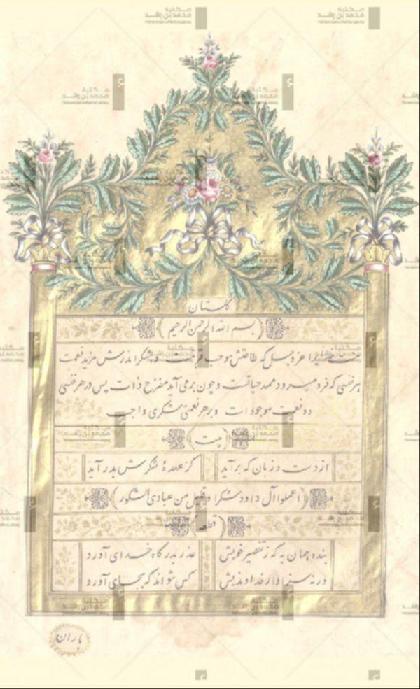 گلستان
بسم الله الرحمن الرحیم
منت خدایرا عز و جل که طاعتش موجب قربتست و بشکر اندرش مزید نعمت
هر نفسی که فرو میرود ممد حیاتست و چون بر می آید مفرح ذات پس در هر نفسی
دو نعمت موجود است و بر هر نعمتی شکری واجب
بیت
از دست و زبان که برآید کز عهدهٔ شکرش بدر آید
اعملوا آل داود شکرا و قلیل من عبادی الشکور
قطعه
بنده همان به که ز تقصیر خویش عذر بدرگاه خدای آورد
ورنه سزاوار خداوندیش کس نتواند که بجای آورد